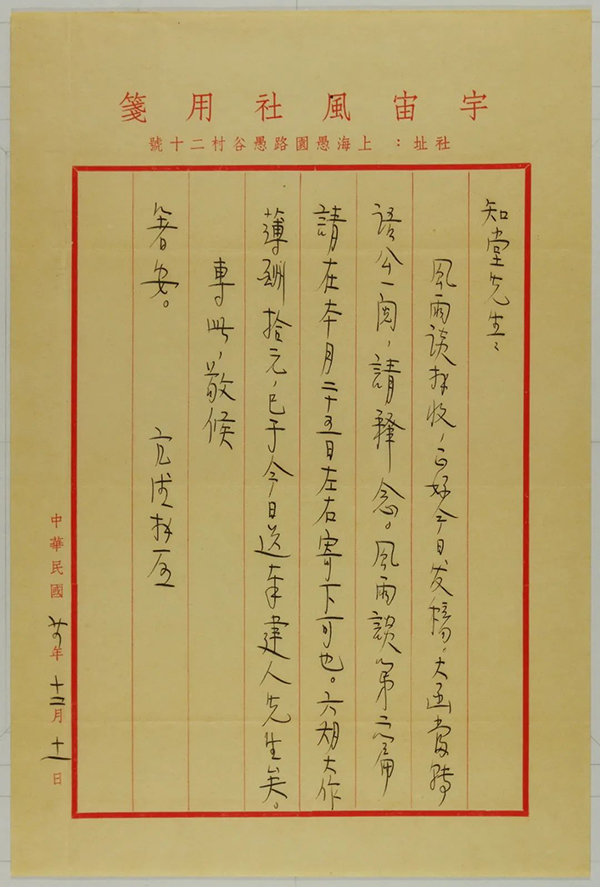 宇宙風社用箋
社址：上海愚園路愚谷村二十號
知堂先生：
風雨談拜收，正好今日发稿，大函當轉
語公一閱，請釋念。風雨談第二篇
請在本月二十五日左右寄下可也。六期大作
薄酬拾元，已于今日送奉建人先生矣。
專此，敬候
著安。
亢德拜
中華民國廿四年十二月十一日